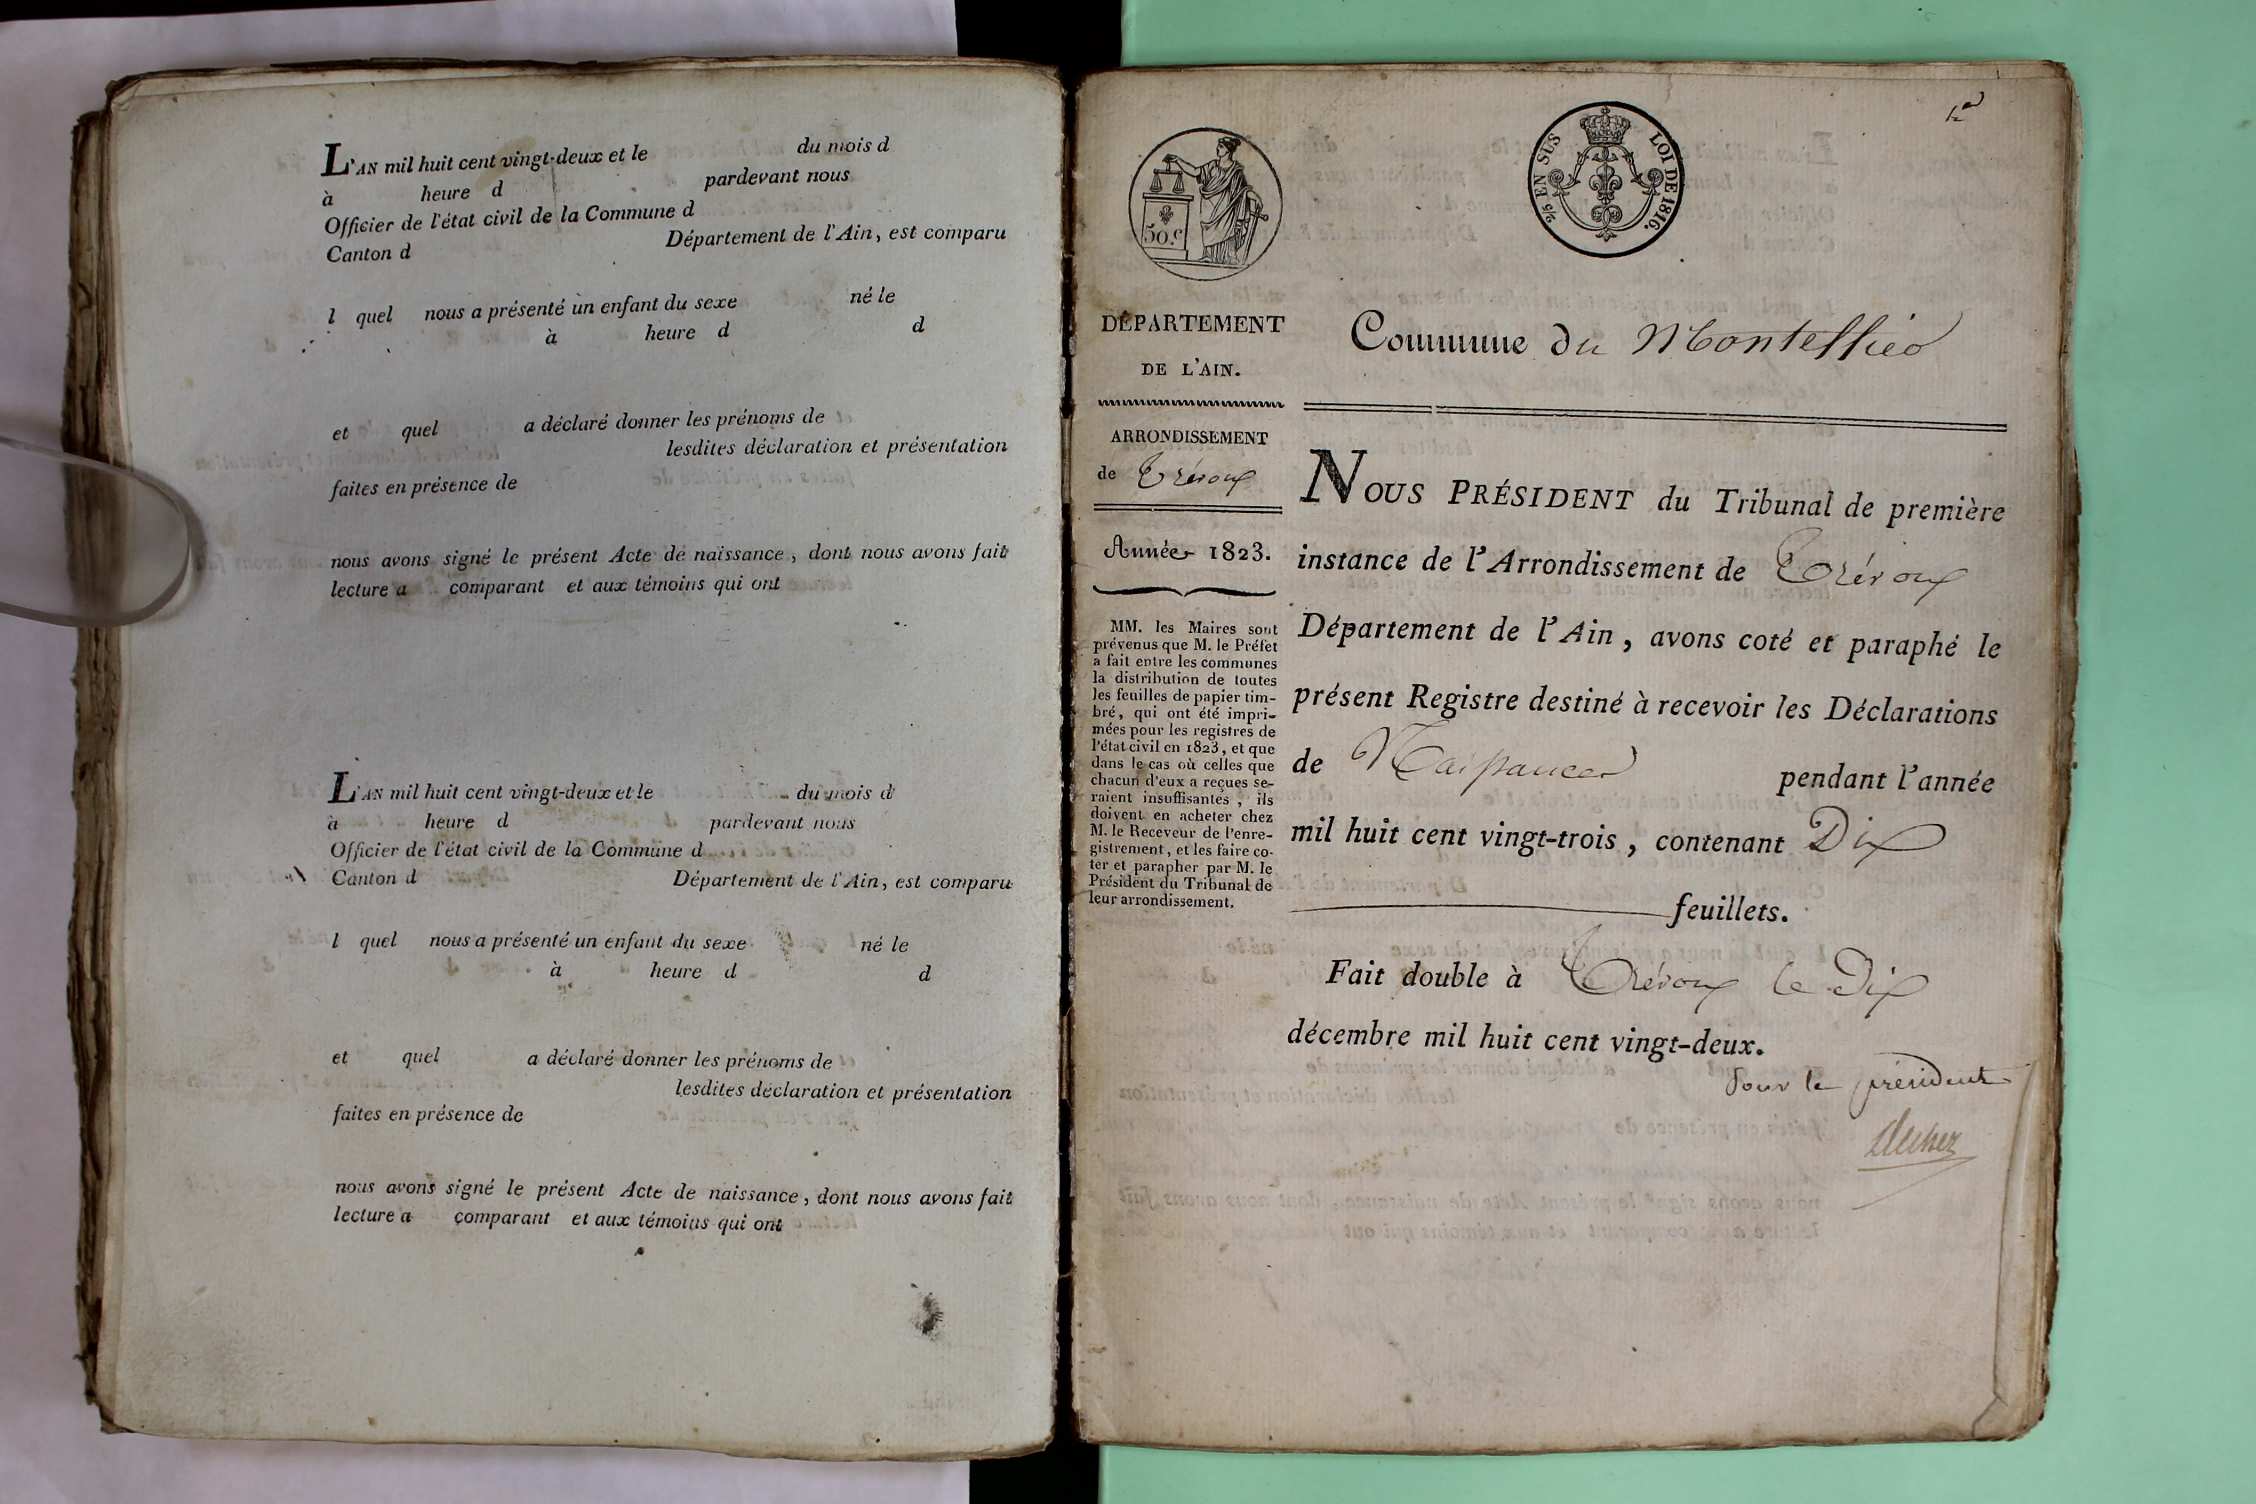 L'AN mil huit cent vingt-deux et le du mois d
à heure d pardevant nous
Officier de l'état civil de la Commune d
Canton d Département de l'Ain, est comparu
l quel nous a présenté un enfant du sexe né le
à heure d d
et quel a déclaré donner les prénoms de
lesdites déclaration et présentation
faites en présence de
nous avons signé le présent Acte de naissance, dont nous avons fait
lecture a comparant et aux témoins qui ont
L'AN mil huit cent vingt-deux et le du mois d
à heure d pardevant nous
Officier de l'état civil de la Commune d
Canton d Département de l'Ain, est comparu
l quel nous a présenté un enfant du sexe né le
à heure d d
et quel a déclaré donner les prénoms de
lesdites déclaration et présentation
faites en présence de
nous avons signé le présent Acte de naissance, dont nous avons fait
lecture a comparant et aux témoins qui ont
50.c
2/5 EN SUS LOI DE 1816.
DÉPARTEMENT
DE L'AIN.
ARRONDISSEMENT
de Trévoux
Année 1823.
MM. les Maires sont
prévenus que M. le Préfet
a fait entre les communes
la distribution de toutes
les feuilles de papier tim-
bré, qui ont été impri-
mées pour les registres de
l'état civil en 1823, et que
dans le cas où celles que
chacun d'eux a reçues se-
raient insuffisantes, ils
doivent en acheter chez
M. le Receveur de l'enre-
gistrement, et les faire co-
ter et parapher par M. le
Président du Tribunal de
leur arrondissement.
Commune du Montellier
NOUS PRÉSIDENT du Tribunal de première
instance de l'Arrondissement de Trévoux
Département de l'Ain, avons coté et paraphé le
présent Registre destiné à recevoir les Déclarations
de Naissances pendant l'année
mil huit cent vingt-trois, contenant Dix
feuillets.
Fait double à Trévoux le Dix
décembre mil huit cent vingt-deux.
Pour le président